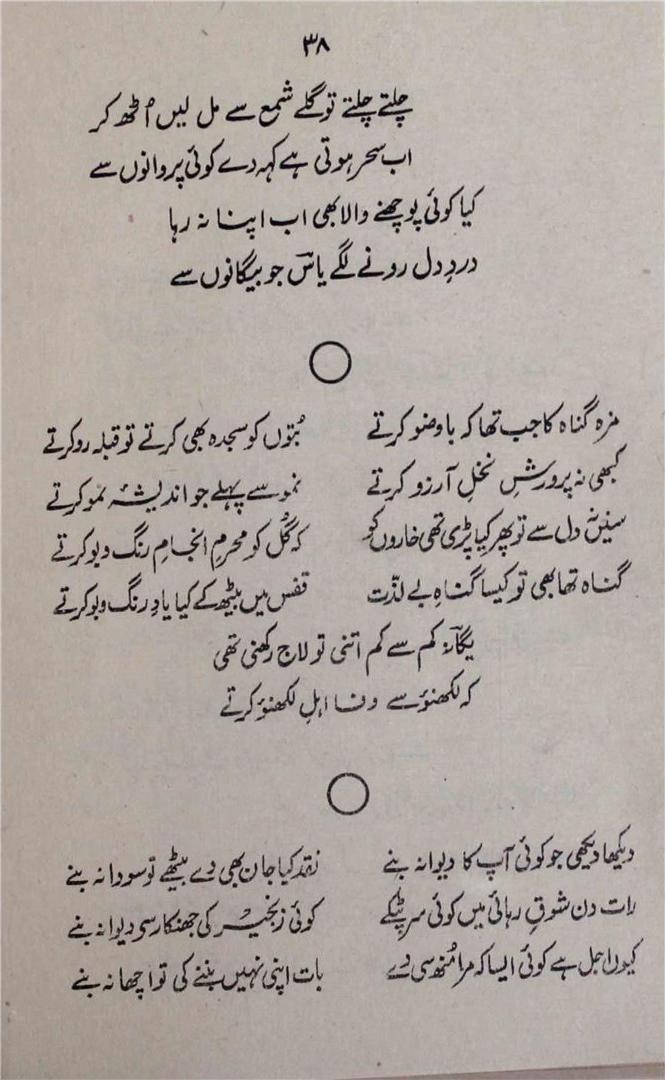 ۳۸
چلتے چلتے تو گلے شمع سے مل لیں اُٹھ کر
اب سحر ہوتی ہے کہہ دے کوئی پروانوں سے
کیا کوئی پوچھنے والا بھی اب اپنا نہ رہا
دردِ دل رونے لگے یاسؔ جو بیگانوں سے
مزہ گناہ کا جب تھا کہ باوضو کرتے بُتوں کو سجدہ بھی کرتے تو قبلہ رو کرتے
کبھی نہ پرورشِ نخلِ آرزو کرتے نمو سے پہلے جو اندیشۂ نمو کرتے
سنیں نہ دل سے تو پھر کیا پڑی تھی خاروں کو کہ گُل کو محرمِ انجامِ رنگ و بو کرتے
گناہ تھا بھی تو کیسا گناہِ بے لذّت قفس میں بیٹھ کے کیا یادِ رنگ و بو کرتے
یگانہؔ کم سے کم اتنی تو لاج رکھنی تھی
کہ لکھنؤ سے وفا اہلِ لکھنؤ کرتے
دیکھا دیکھی جو کوئی آپ کا دیوانہ بنے نقد کیا جان بھی دے بیٹھے تو سودا نہ بنے
رات دن شوقِ رہائی میں کوئی سر پٹکے کوئی زنجیر کی جھنکار سے دیوانہ بنے
کیوں اجل ہے کوئی ایسا کہ مرا مُنھ سی دے بات اپنی نہیں بننے کی تو اچھا نہ بنے